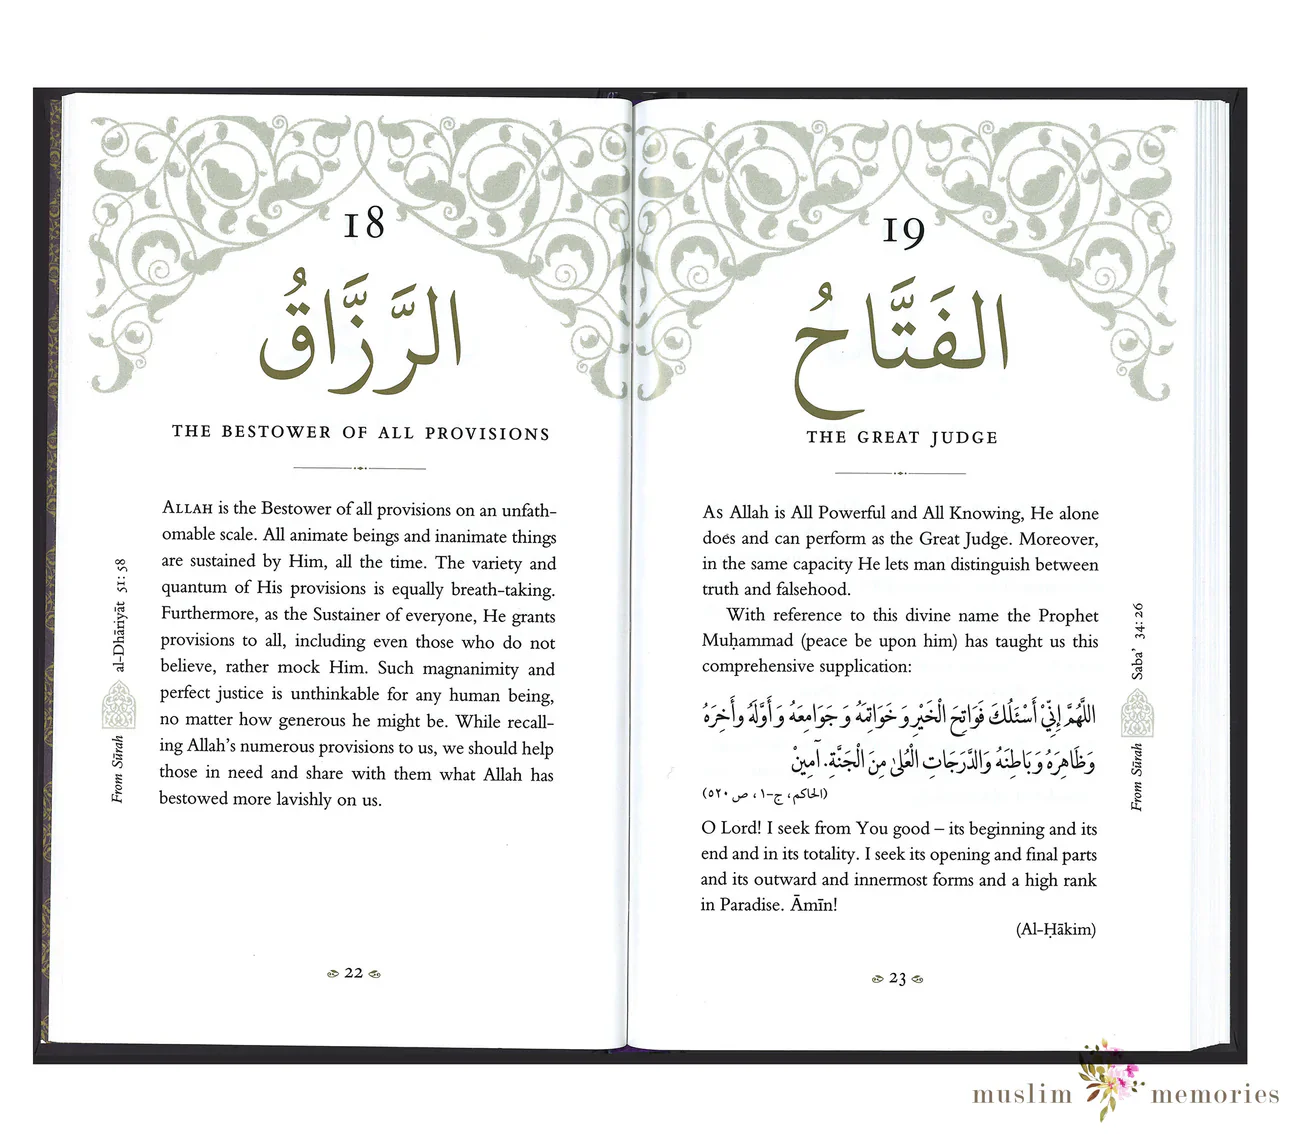 18
الرَّزَّاقُ
THE BESTOWER OF ALL PROVISIONS
ALLAH is the Bestower of all provisions on an unfath-
omable scale. All animate beings and inanimate things
are sustained by Him, all the time. The variety and
quantum of His provisions is equally breath-taking.
Furthermore, as the Sustainer of everyone, He grants
provisions to all, including even those who do not
believe, rather mock Him. Such magnanimity and
perfect justice is unthinkable for any human being,
no matter how generous he might be. While recall-
ing Allah's numerous provisions to us, we should help
those in need and share with them what Allah has
bestowed more lavishly on us.
From Sūrah al-Dhāriyāt 51: 58
22
19
الفَتَّاحُ
THE GREAT JUDGE
As Allah is All Powerful and All Knowing, He alone
does and can perform as the Great Judge. Moreover,
in the same capacity He lets man distinguish between
truth and falsehood.
With reference to this divine name the Prophet
Muḥammad (peace be upon him) has taught us this
comprehensive supplication:
اللَّهُمَّ إِنِّيْ أَسْئَلُكَ فَوَاتِحَ الْخَيْرِ وَ خَوَاتِمَهُ وَ جَوَامِعَهُ وَ أَوَّلَهُ وأَخِرَهُ
وَظَاهِرَهُ وَ بَاطِنَهُ وَالدَّرَجَاتِ الْعُلىٰ مِنَ الْجَنَّةِ. آمِيْنْ
(الحاكم، ج-١، ص ٥٢٠)
O Lord! I seek from You good – its beginning and its
end and in its totality. I seek its opening and final parts
and its outward and innermost forms and a high rank
in Paradise. Āmīn!
(Al-Ḥākim)
From Sūrah Saba' 34: 26
23
muslim memories